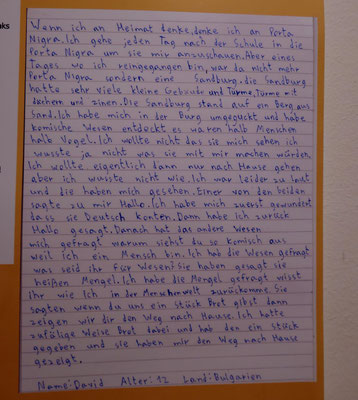 Wenn ich an Heimat denke, denke ich an Porta
Nigra. Ich gehe jeden Tag nach der Schule in die
Porta Nigra um sie mir anzuschauen. Aber eines
Tages wo ich reingegangen bin, war da nicht mehr
Porta Nigra sondern eine Sandburg. die Sandburg
hatte sehr viele kleine Gebeude und Türme, Türme mit
dechern und zinen. Die Sandburg stand auf ein Berg aus
Sand. Ich habe mich in der Burg umgeguckt und habe
komische Wesen entdeckt es waren halb Menschen
halb Vogel. Ich wollte nicht das sie mich sehen ich
wusste ja nicht was sie mit mir machen würden.
Ich wollte eigentlich dann nur nach Hause gehen
aber ich wusste nicht wie. Ich war leider zu laut
und die haben mich gesehen. Einer von den beiden
sagte zu mir Hallo. Ich habe mich zuerst gewundert
dass sie Deutsch konten. Dann habe ich zurück
Hallo gesagt. Danach hat das andere Wesen
mich gefragt warum siehst du so komisch aus
weil ich ein Mensch bin. Ich hab die Wesen gefragt
was seid ihr für Wesen? Sie haben gesagt sie
heißen Mengel. Ich habe die Mengel gefragt wisst
Ihr wie Ich in der Menschenwelt zurückomme. Sie
sagten wenn du uns ein Stück Brot gibst dann
zeigen wir dir den Weg nach Hause. Ich hatte
zufälige Weise Brot dabei und hab den ein stück
gegeben und sie haben mir den Weg nach Hause
gezeigt.
Name: David Alter: 12 Land: Bulgarien